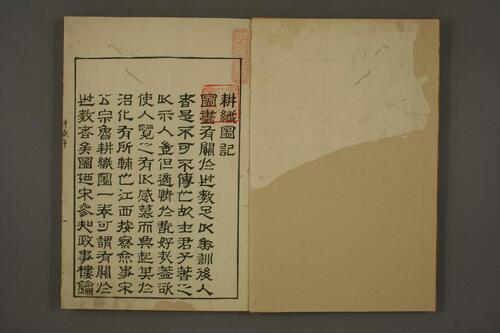 耕織圖記
圖畫有關於世教足以垂訓後人
者是不可不傳也故士君子著之
以示人豈但適情於翫好哉葢欲
使人覽之有以感慕而興起其於
治化有所補也江西按察僉事宋
公宗魯耕織圖一卷可謂有關於
世教者矣圖廼宋參知政事樓鑰